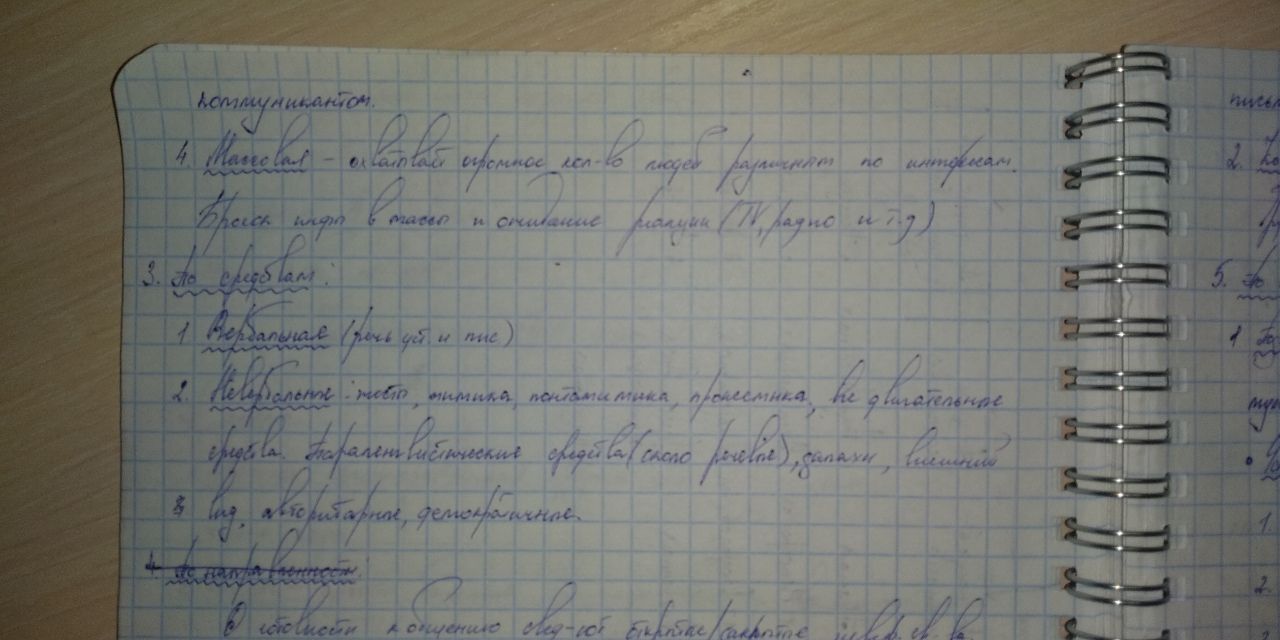 коммуникантом.
4. Массовая – охватывает огромное кол-во людей различных по интересам.
Бросок инфы в массы и ожидание реакции (TV, радио и т.д)
3. По средствам:
1 Вербальная (речь уст. и пис)
2. Невербальные: жесты, мимика, пантомимика, проксемика, все двигательные
средства. Паралингвистические средства (около речевые), запахи, внешний
вид, авторитарные, демократичные.
4. По направленности:
О готовности к общению свид-ют открытые/закрытые
письм
2.
5. По
1
1.
2.